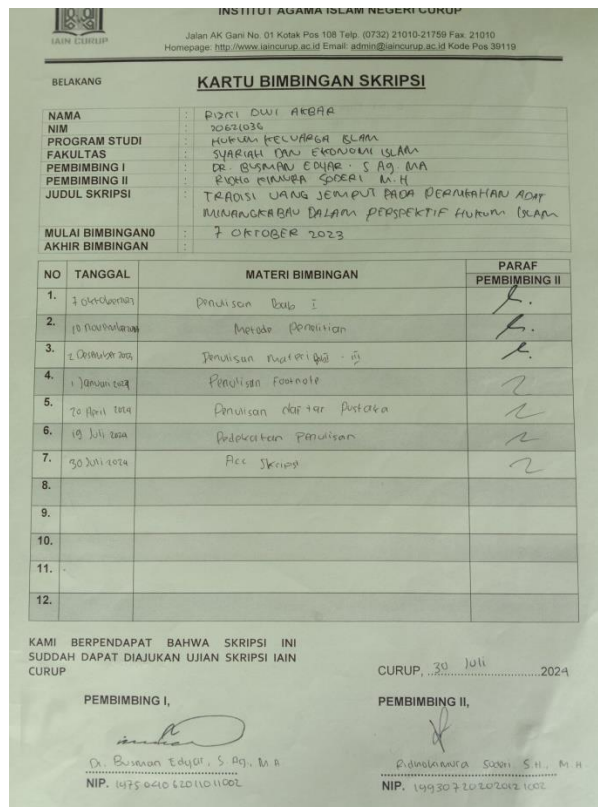 INSTITUT AGAMA ISLAM NEGERI CURUP
IAIN CURUP
Jalan AK Gani No. 01 Kotak Pos 108 Telp. (0732) 21010-21759 Fax. 21010
Homepage: http://www.iaincurup.ac.id Email: admin@iaincurup.ac.id Kode Pos 39119
BELAKANG
KARTU BIMBINGAN SKRIPSI
NAMA : RIZKI DWI AKBAR
NIM : 20621036
PROGRAM STUDI : HUKUM KELUARGA ISLAM
FAKULTAS : SYARIAH DAN EKONOMI ISLAM
PEMBIMBING I : DR. BUSMAN EDYAR. S Ag. MA
PEMBIMBING II : RIDHO KIMURA SODERI M.H
JUDUL SKRIPSI : TRADISI UANG JEMPUT PADA PERNIKAHAN ADAT
MINANGKABAU DALAM PERSPEKTIF HUKUM ISLAM
MULAI BIMBINGAN0 : 7 OKTOBER 2023
AKHIR BIMBINGAN :
NO TANGGAL MATERI BIMBINGAN PARAF
PEMBIMBING II
1. 7 Oktober 2023 Penulisan Bab I
2. 10 November Metode Penelitian
3. 2 Desember 2023 Penulisan materi
4. 1 Januari 2024 Penulisan Footnote
5. 20 April 2024 Penulisan daftar Pustaka
6. 19 Juli 2024 Penulisan
7. 30 Juli 2024 Acc Skripsi
8.
9.
10.
11.
12.
KAMI BERPENDAPAT BAHWA SKRIPSI INI
SUDDAH DAPAT DIAJUKAN UJIAN SKRIPSI IAIN
CURUP
CURUP, 30 Juli 2024
PEMBIMBING I,
PEMBIMBING II,
Dr. Busman Edyar, S. Ag, M.A
NIP. 197504062011011002
Ridhokimura Soderi S.H., M.H
NIP. 199307202020121002